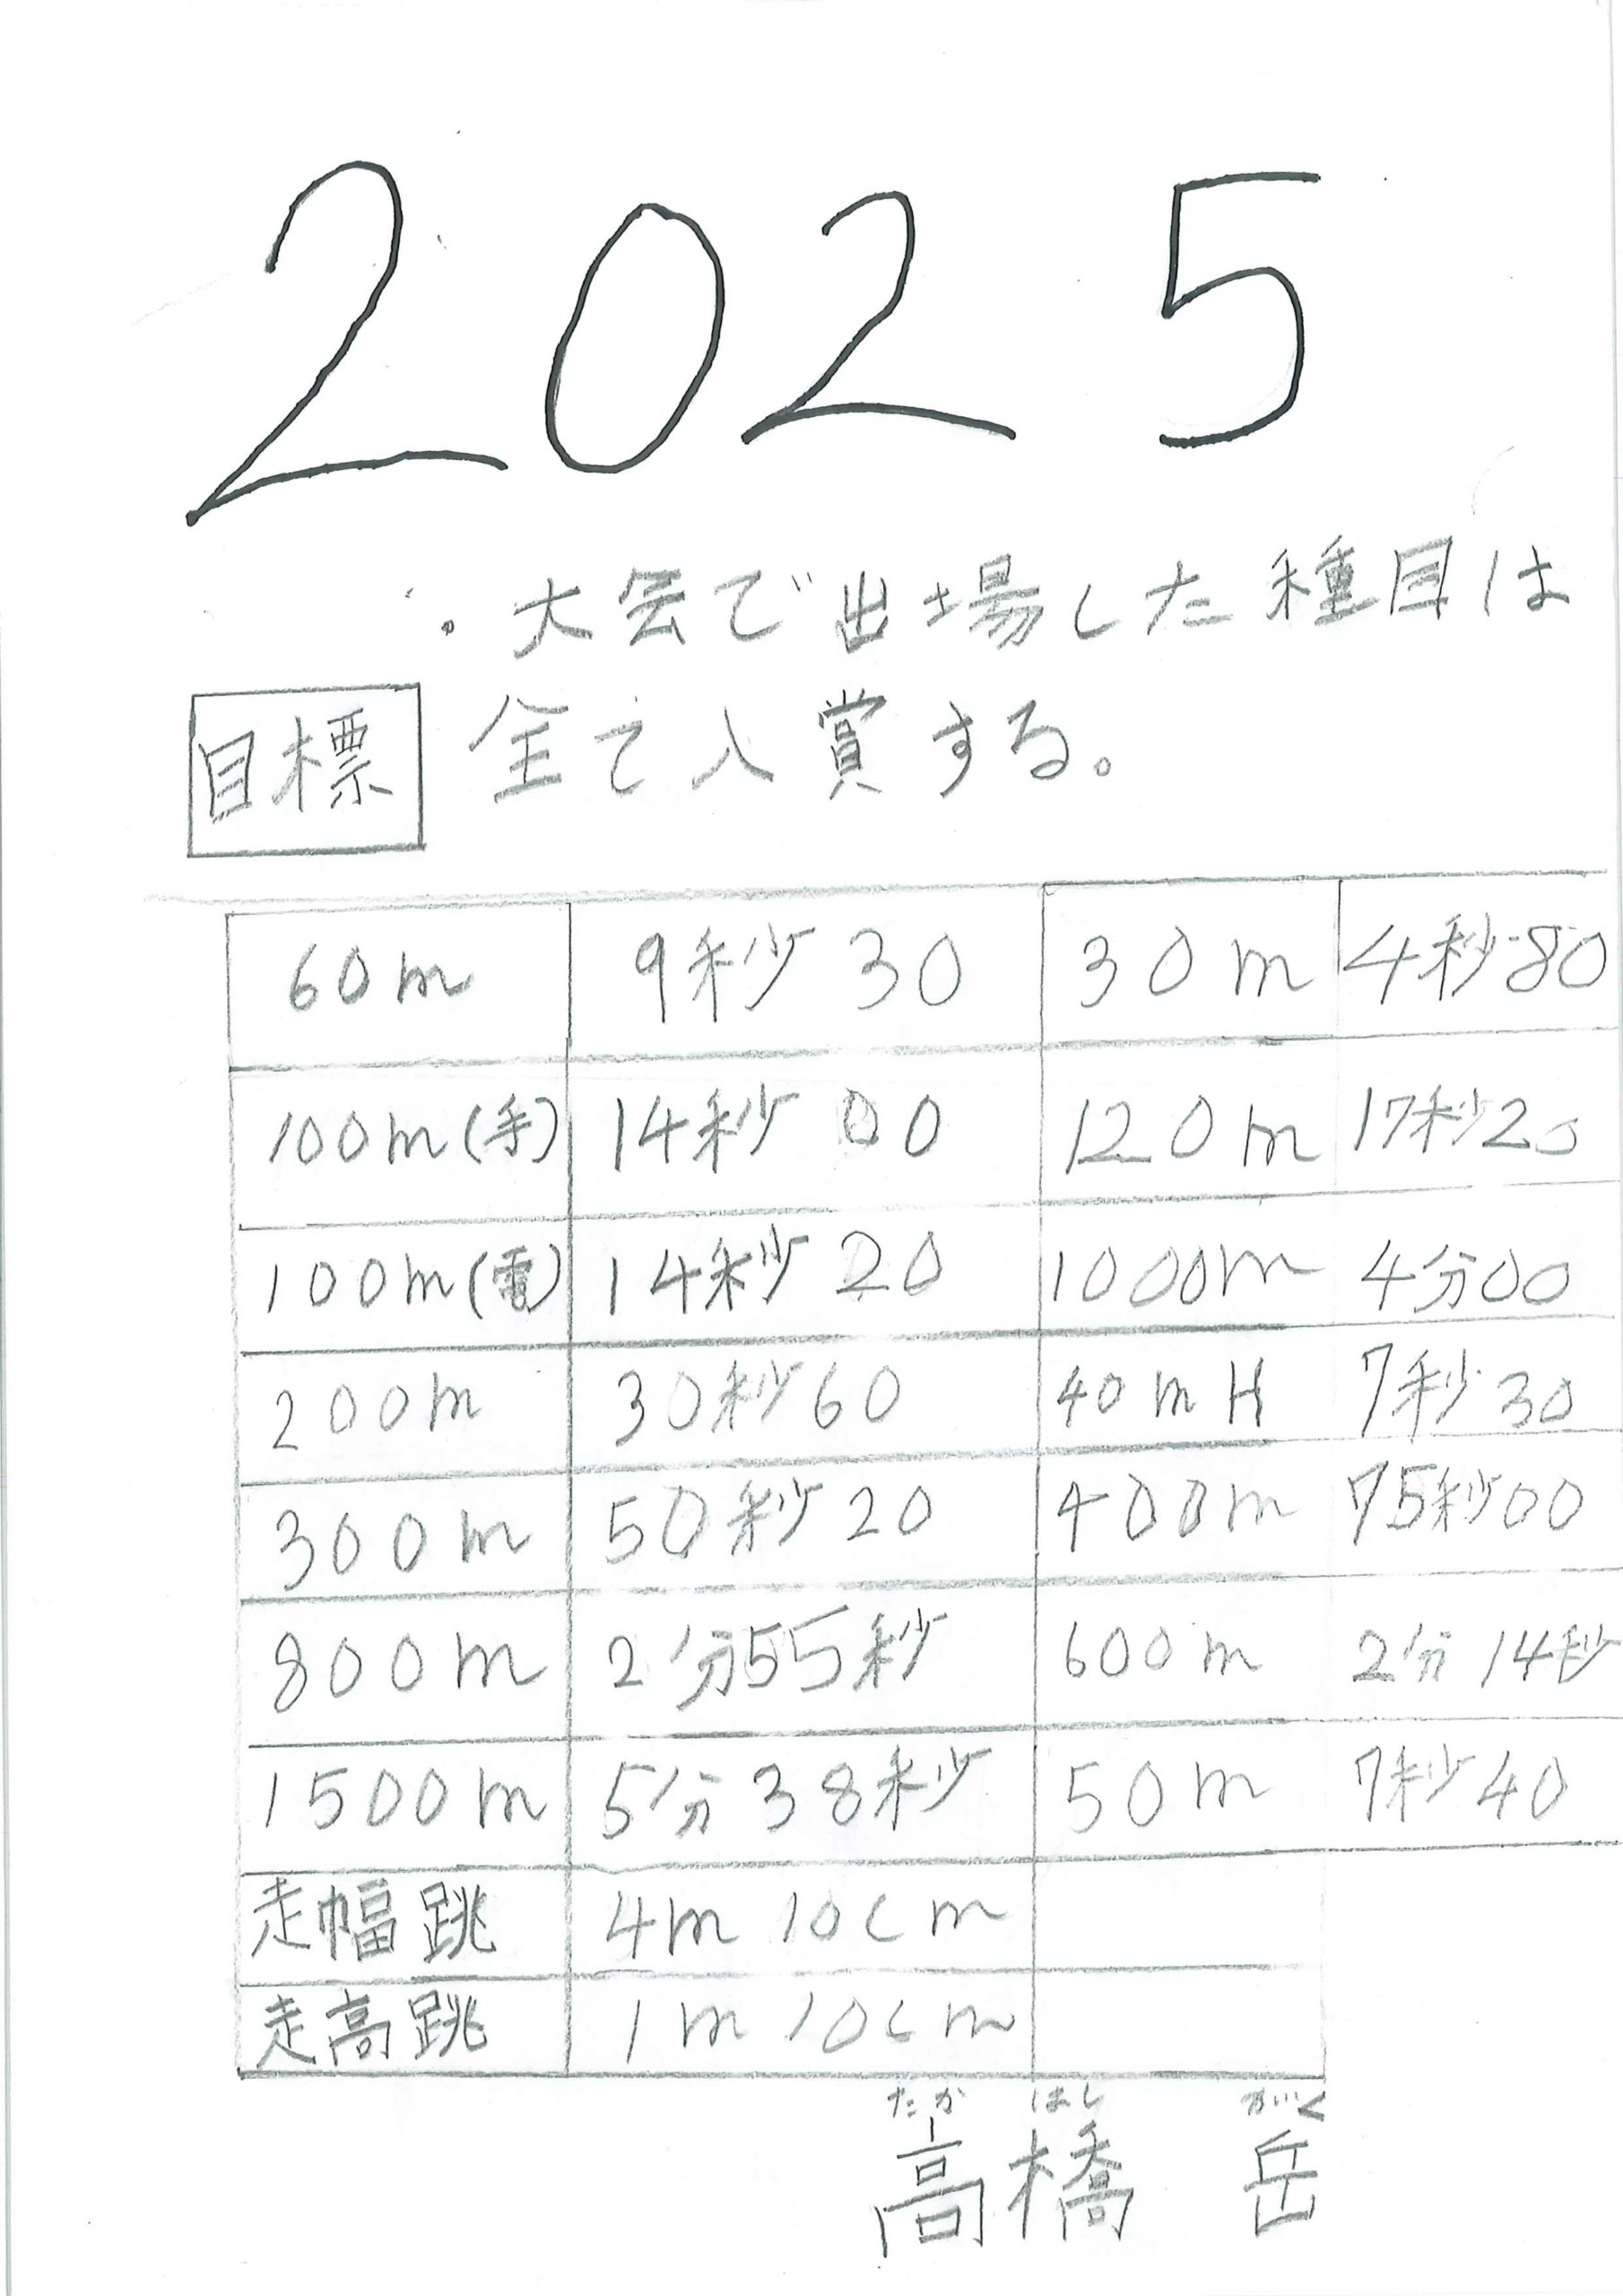 2025
・大会で出場した種目は
目標 全て入賞する。
60m 9秒30 30m 4秒80
100m(手) 14秒00 120m 17秒20
100m(電) 14秒20 1000m 4分00
200m 30秒60 40mH 7秒30
300m 50秒20 400m 75秒00
800m 2分55秒 600m 2分14秒
1500m 5分38秒 50m 7秒40
走幅跳 4m10cm
走高跳 1m10cm
たか はし がく
高橋 岳